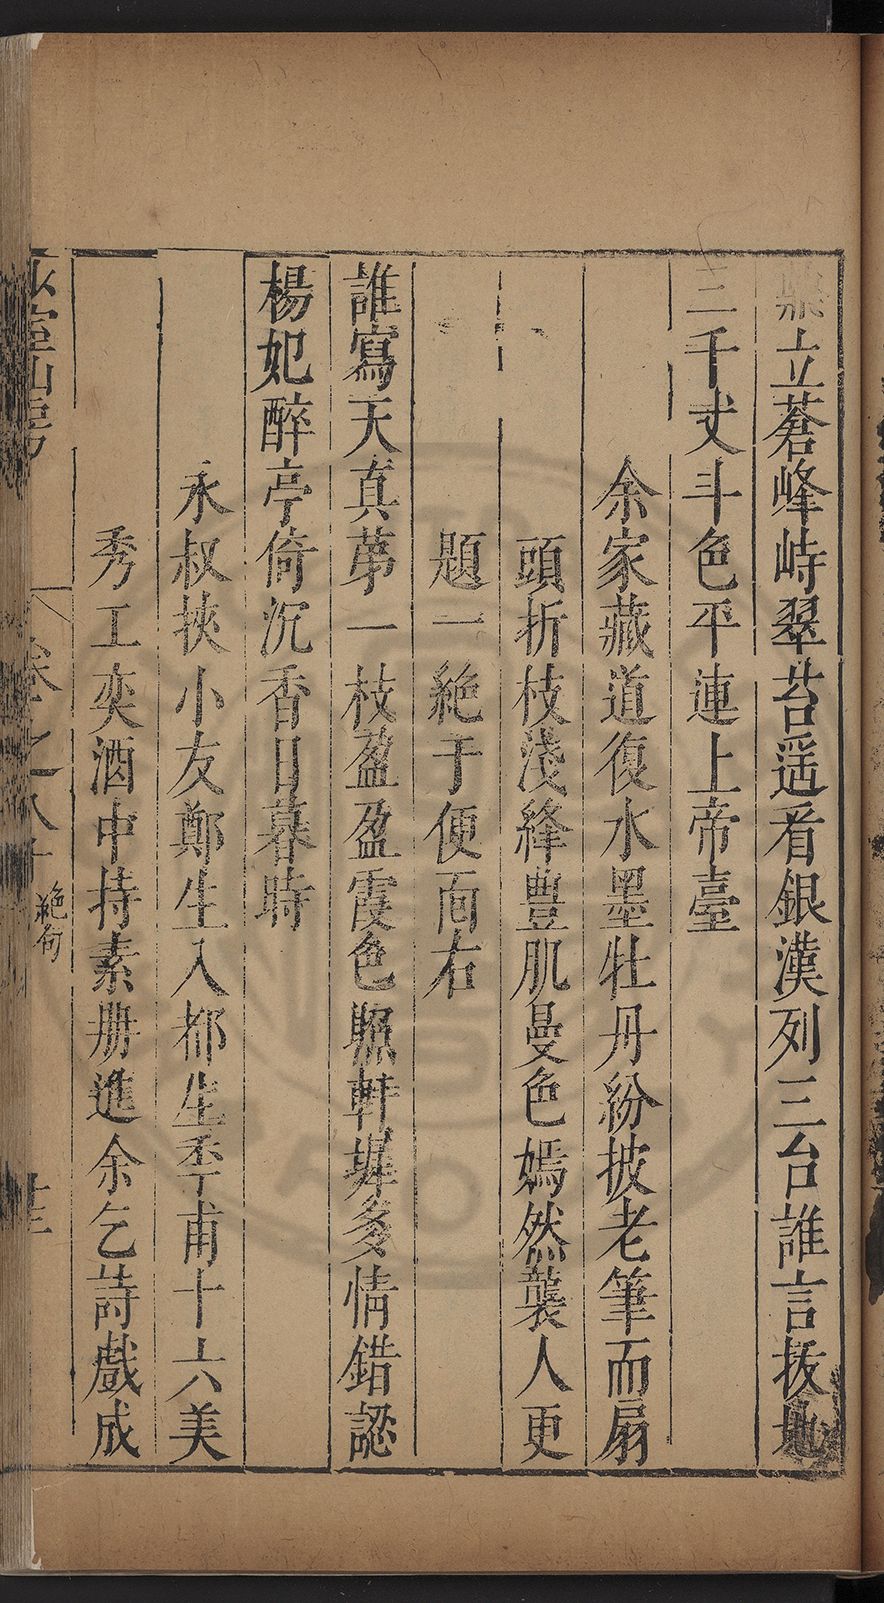 立蒼峰峙翠苔遥看銀漢列三台誰言拔地
三千丈斗色平連上帝臺
余家藏道復水墨牡丹紛披老筆而扇
頭折枝淺絳豐肌曼色嫣然襲人更
題一絶于便面右
誰寫天真第一枝盈盈霞色照軒墀多情錯認
楊妃醉亭倚沉香日暮時
永叔挾小友鄭生入都生季甫十六美
秀工奕酒中持素册進余乞詩戲成
山房
卷之八十
絶句